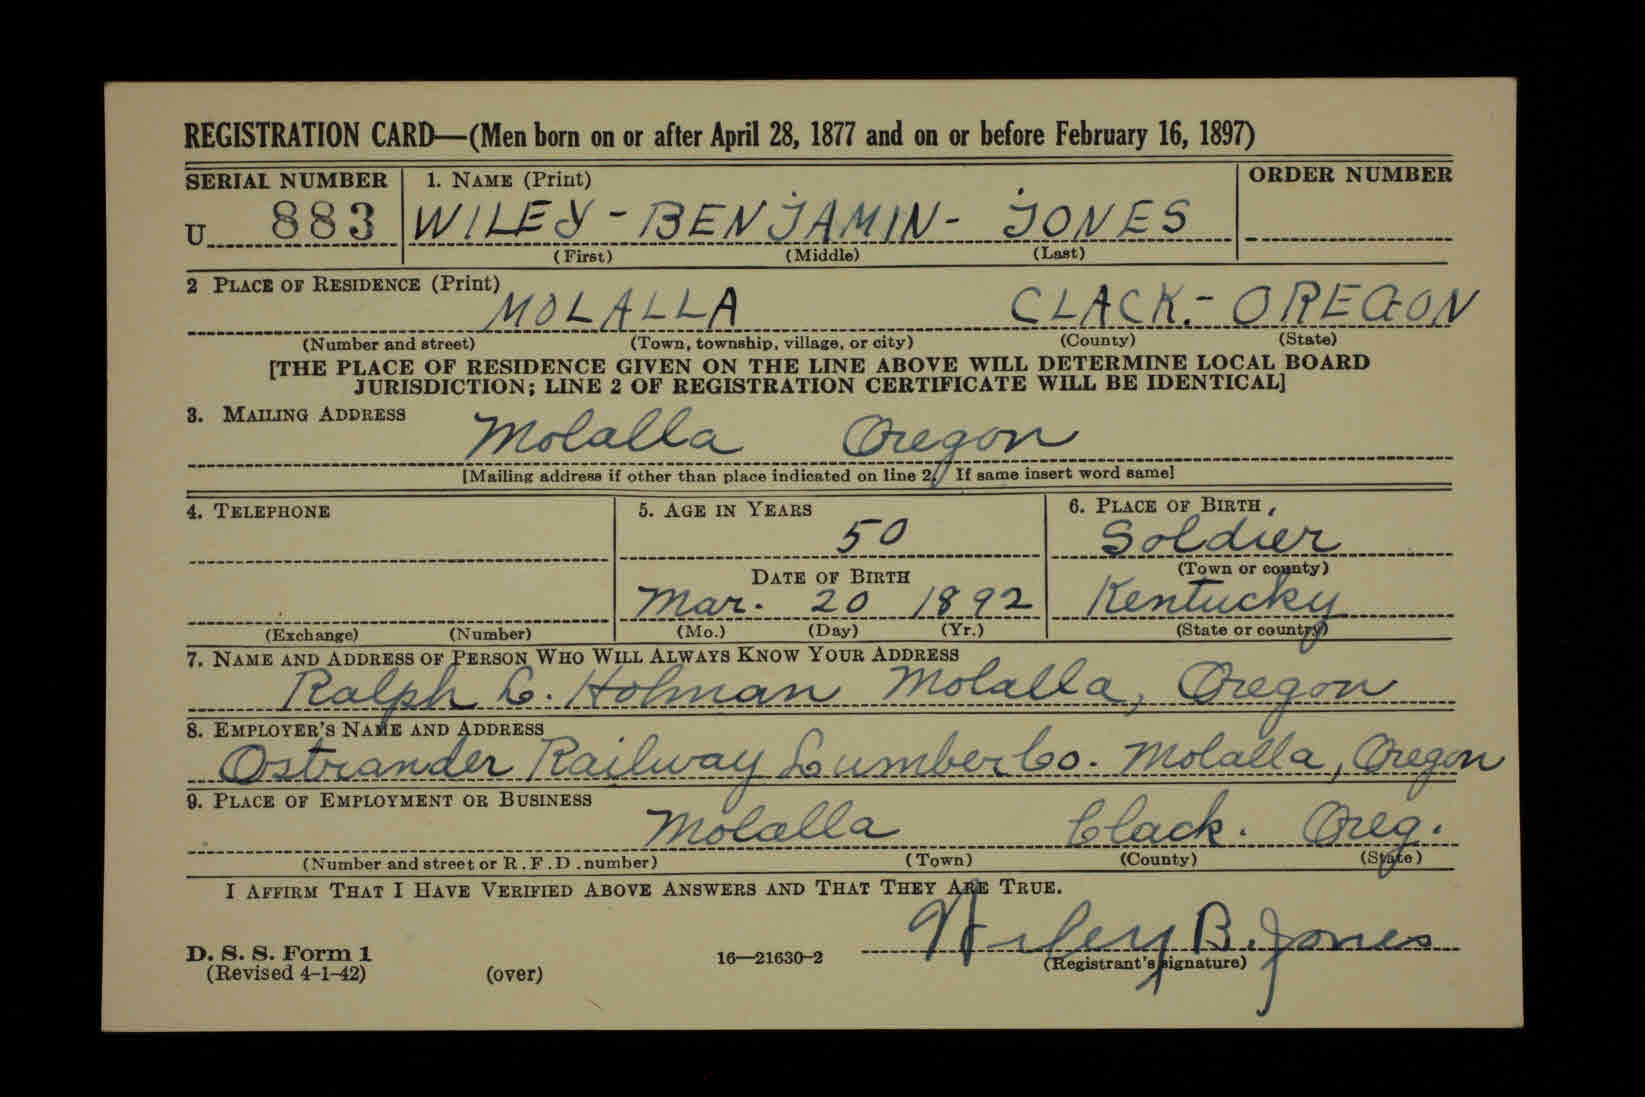 REGISTRATION CARD—(Men born on or after April 28, 1877 and on or before February 16, 1897)
SERIAL NUMBER 1. NAME (Print) ORDER NUMBER
U 883 WILEY - BENJAMIN - JONES
(First) (Middle) (Last)
2 PLACE OF RESIDENCE (Print)
MOLALLA CLACK. - OREGON
(Number and street) (Town, township, village, or city) (County) (State)
[THE PLACE OF RESIDENCE GIVEN ON THE LINE ABOVE WILL DETERMINE LOCAL BOARD
JURISDICTION; LINE 2 OF REGISTRATION CERTIFICATE WILL BE IDENTICAL]
3. MAILING ADDRESS
Molalla Oregon
[Mailing address if other than place indicated on line 2. If same insert word same]
4. TELEPHONE 5. AGE IN YEARS 6. PLACE OF BIRTH
50 Soldier
DATE OF BIRTH (Town or county)
Mar. 20 1892 Kentucky
(Exchange) (Number) (Mo.) (Day) (Yr.) (State or country)
7. NAME AND ADDRESS OF PERSON WHO WILL ALWAYS KNOW YOUR ADDRESS
Ralph L. Holman Molalla, Oregon
8. EMPLOYER'S NAME AND ADDRESS
Ostrander Railway Lumber Co. Molalla, Oregon
9. PLACE OF EMPLOYMENT OR BUSINESS
Molalla Clack. Oreg.
(Number and street or R. F. D. number) (Town) (County) (State)
I AFFIRM THAT I HAVE VERIFIED ABOVE ANSWERS AND THAT THEY ARE TRUE.
Wiley B. Jones
D. S. S. Form 1 16—21630-2 (Registrant's signature)
(Revised 4-1-42) (over)